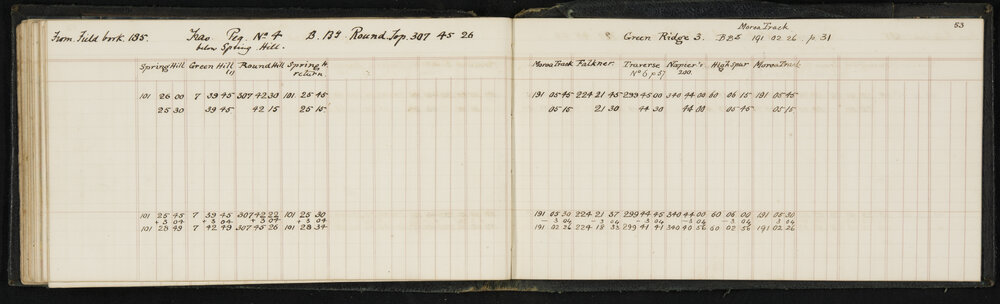 From Field book. 135. Trav Peg. No 4 B. B4 Round Top. 307 45 26
below Spring Hill.
Spring Hill Green Hill Round Hill Spring H.
(1) return.
101 26 00 7 39 45 307 42 30 101 25 45
25 30 39 45 42 15 25 15
101 25 45 7 39 45 307 42 22 101 25 30
+ 3 04 + 3 04 + 3 04 + 3 04
101 28 49 7 42 49 307 45 26 101 28 34
53
Moreo Track
Green Ridge 3. BBS 191 02 26 p 31
Moreo Track Falkner. Traverse Napier's High Spur Moreo Track
No 6 p 57 200.
191 05 45 224 21 45 299 45 00 340 44 00 60 06 15 191 05 45
05 15 21 30 44 30 44 00 05 45 05 15
191 05 30 224 21 37 299 44 45 340 44 00 60 06 00 191 05 30
– 3 04 – 3 04 – 3 04 – 3 04 – 3 04 3 04
191 02 26 224 18 33 299 41 41 340 40 56 60 02 56 191 02 26